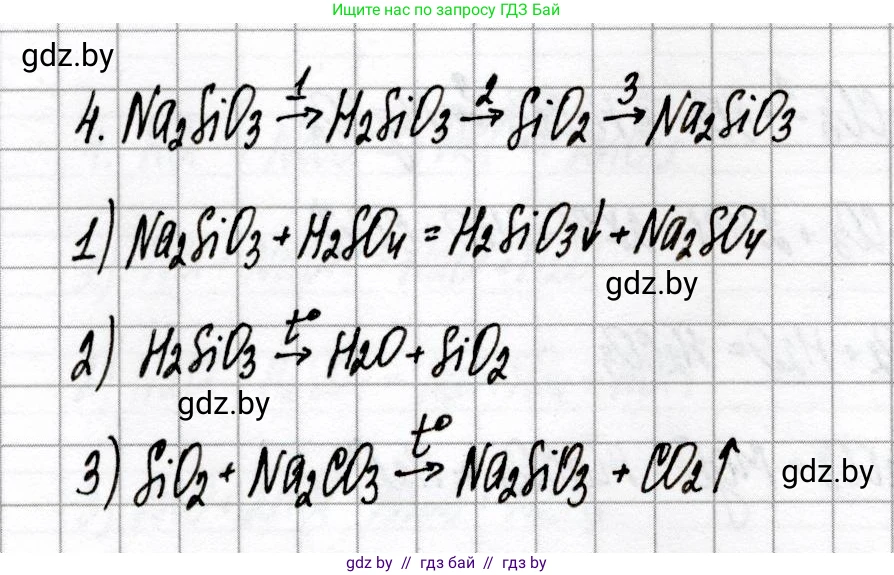 Ищите нас по запросу ГДЗ Бай
gdz.by
4. Na₂SiO₃ →¹ H₂SiO₃ →² SiO₂ →³ Na₂SiO₃
1) Na₂SiO₃ + H₂SO₄ = H₂SiO₃↓ + Na₂SO₄
gdz.by
2) H₂SiO₃ →t° H₂O + SiO₂
gdz.by
3) SiO₂ + Na₂CO₃ →t° Na₂SiO₃ + CO₂↑
gdz.by
gdz.by // гдз бай // gdz.by